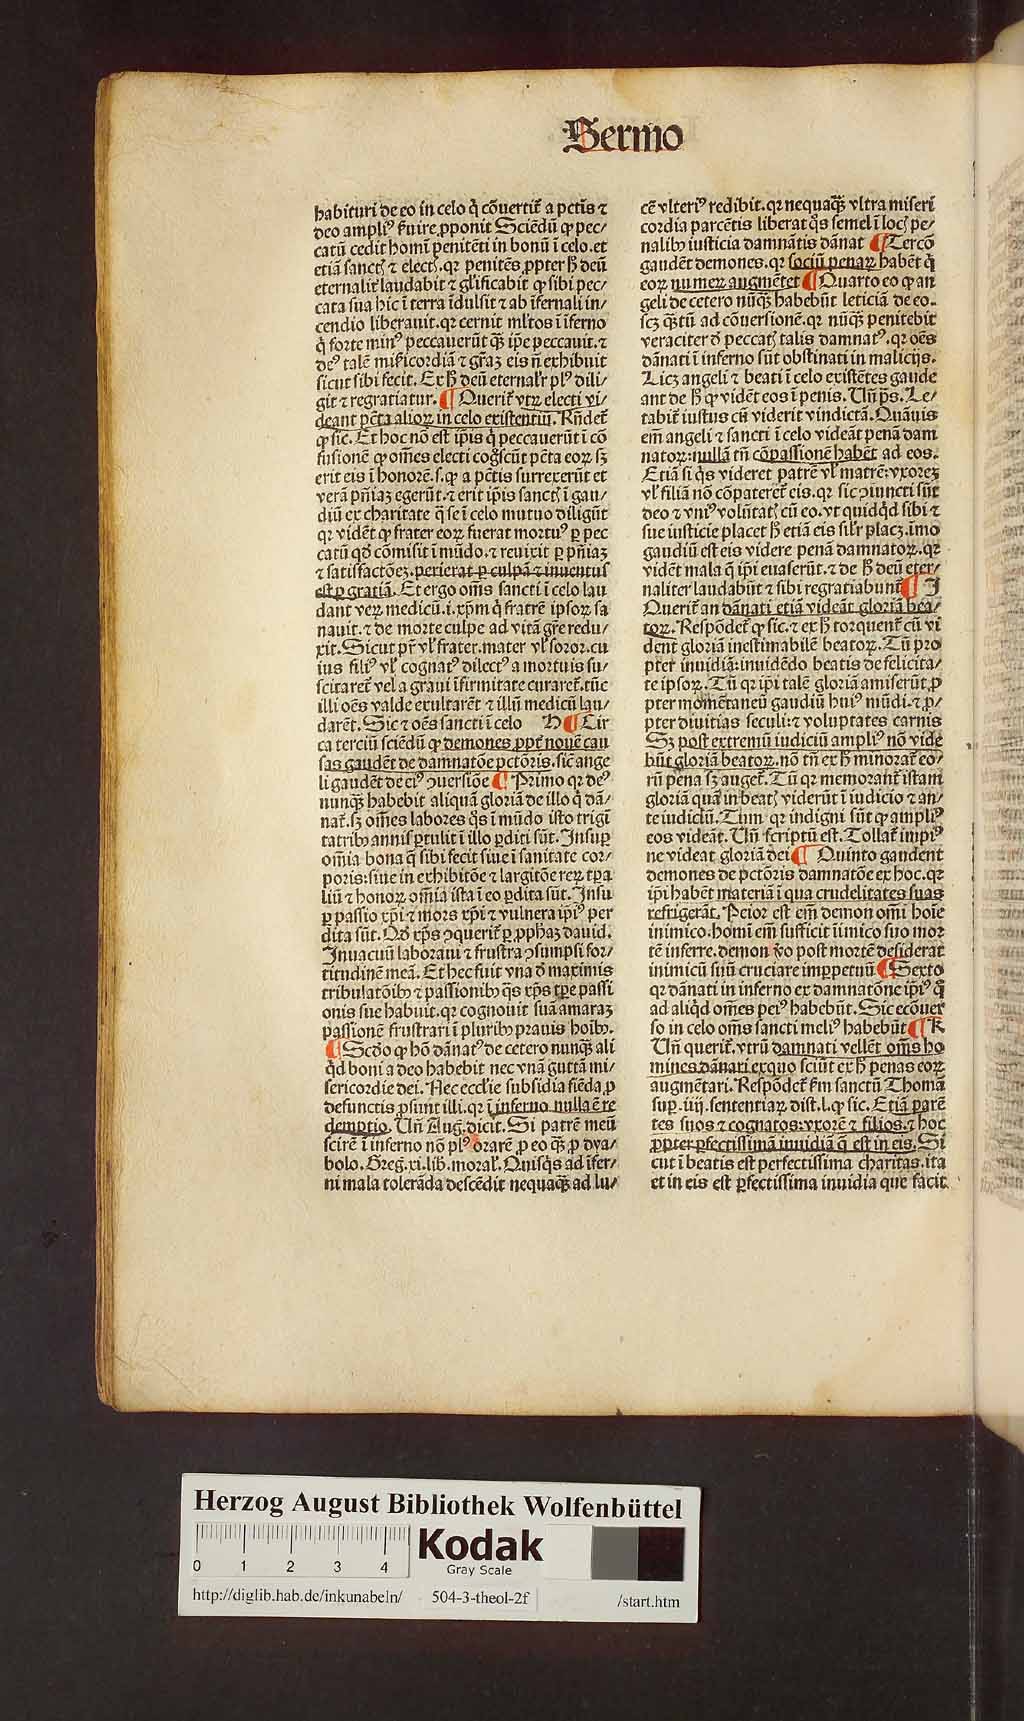 Sermo
habituri de eo in celo q̇ cōuertit̄ a pctīs ⁊
deo ampliꝰ ẜuire ꝓponit Sciēdū ꝙ pec⸗
catū cedit homī penitēti in bonū ī celo. et
etiā sanctꝭ ⁊ electꝭ. qꝛ penitēs ꝓpter ħ deū
eternalit̄ laudabit ⁊ gl̄ificabit ꝙ sibi pec⸗
cata sua hic ī terra īdulsit ⁊ ab īfernali in⸗
cendio liberauit. qꝛ cernit ml̄tos ī īferno
q̇ forte minꝰ peccauerūt qꝫ̄ ip̄e peccauit. ⁊
deꝰ talē mīẜicordiā ⁊ gr̄aꝫ eis nō exhibuit
sicut sibi fecit. Ex ħ deū eternal'r plꝰ dili⸗
git ⁊ regratiatur. ¶ Querit̄ vtꝝ electi vi⸗
deant pctā alioꝝ in celo existentiū. Rn̄det̄
ꝙ sic. Et hoc nō est ip̄is q̇ peccauerūt ī cō
fusionē ꝙ om̄es electi coḡscūt pctā eoꝝ sꝫ
erit eis ī honorē. s. ꝙ a pctīs surrexerūt et
verā pn̄iaꝫ egerūt. ⁊ erit ip̄is sanctꝭ ī gau⸗
diū ex charitate q̄ se ī celo mutuo diligūt
qꝛ vidēt ꝙ frater eoꝝ fuerat mortuꝰ ꝑ pec
catū qd̄ cōmisit ī mūdo. ⁊ reuixit ꝑ pn̄iaꝫ
⁊ satisfactōeꝫ. perierat ꝑ culpā ⁊ inuentus
est ꝑ gratiā. Et ergo om̄s sancti ī celo lau
dant veꝝ medicū. i. xp̄m q̇ fratrē ipsoꝝ sa
nauit. ⁊ de morte culpe ad vitā gr̄e redu⸗
xit. Sicut pr̄ vl̄ frater. mater vl̄ soror. cu
ius filiꝰ vl̄ cognatꝰ dilectꝰ a mortuis su⸗
scitaret̄ vel a graui īfirmitate curaret̄. tūc
illi oēs valde exultarēt ⁊ illū medicū lau⸗
darēt. Sic ⁊ oēs sancti ī celo H ¶ Cir
ca terciū sciēdū ꝙ demones ꝓpt̄ nouē cau
sas gaudēt de damnatōe pctōris. sic̄ ange
li gaudēt de eiꝰ ꝯuersiōe ¶ Primo qꝛ deꝰ
nunqꝫ̄ habebit aliquā gloriā de illo q̇ dā⸗
nat̄. sꝫ om̄es labores q̇s ī mūdo isto trigī
tatribꝰ annis ꝑtulit ī illo ꝑditi sūt. Insup
om̄ia bona q̄ sibi fecit siue ī sanitate cor⸗
poris: siue in exhibitōe ⁊ largitōe reꝝ tꝑa
liū ⁊ honoꝝ om̄ia ista ī eo ꝑdita sūt. Insu
ꝑ passio xp̄i ⁊ mors xp̄i ⁊ vulnera ip̄iꝰ per
dita sūt. Qd̄ xp̄s ꝯquerit̄ ꝑ ꝓphaꝫ dauid.
In vacuū laboraui ⁊ frustra ꝯsumpsi for⸗
titudinē meā. Et hec fuit vna d̄ maximis
tribulatōibꝰ ⁊ passionibꝰ q̇s xp̄s tꝑe passi
onis sue habuit. qꝛ cognouit suā amaraꝫ
passionē frustrari ī pluribꝰ prauis hoībꝰ.
¶ Scd̄o ꝙ hō dānatꝰ de cetero nunqꝫ̄ ali
q̇d boni a deo habebit nec vnā guttā mi⸗
sericordie dei. Nec eccl̄ie subsidia fiēda ꝓ
defunctis ꝓsunt illi. qꝛ ī inferno nulla ē re
demptio. Un̄ Aug. dicit. Si patrē meū
scirē ī inferno nō plꝰ orarē ꝓ eo qꝫ̄ ꝓ dya⸗
bolo. Greg. xi. lib. moral'. Quisq̇s ad īfer⸗
ni mala tolerāda descēdit nequaqꝫ̄ ad lu⸗
cē vlteriꝰ redibit. qꝛ nequaqꝫ̄ vltra miseri
cordia parcētis liberat q̇s semel ī locꝭ pe⸗
nalibꝰ iusticia damnātis dānat ¶ Tercō
gaudēt demones. qꝛ sociū penaꝝ habēt q̇
eoꝝ numeꝝ augmētet ¶ Quarto eo ꝙ an
geli de cetero nūqꝫ̄ habebūt leticiā de eo.
scꝫ qꝫ̄tū ad cōuersionē. qꝛ nūqꝫ̄ penitebit
veraciter d̄ peccatꝭ talis damnatꝰ. qꝛ oēs
dānati ī inferno sūt obstinati in malicijs.
Licꝫ angeli ⁊ beati ī celo existētes gaude
ant de ħ ꝙ vidēt eos ī penis. Un̄ ps. Le⸗
tabit̄ iustus cū viderit vindictā. Quāuis
em̄ angeli ⁊ sancti ī celo videāt penā dam
natoꝝ: nullā tn̄ cōpassionē habēt ad eos.
Etiā si q̇s videret patrē vl̄ matrē: vxoreꝫ
vl̄ filiā nō cōpateret̄ eis. qꝛ sic ꝯiuncti sūt
deo ⁊ vniꝰ volūtatꝭ cū eo. vt quidq̇d sibi ⁊
sue iusticie placet ħ etiā eis sil'r placꝫ. imo
gaudiū est eis videre penā damnatoꝝ. qꝛ
vidēt mala q̄ ip̄i euaserūt. ⁊ de ħ deū eter⸗
naliter laudabūt ⁊ sibi regratiabunt̄ ¶ I
Querit̄ an dānati etiā videāt gloriā bea⸗
toꝝ. Respōdet̄ ꝙ sic. ⁊ ex ħ torquent̄ cū vi
dent gloriā inestimabilē beatoꝝ. Tū pro
pter inuidiā: inuidēdo beatis de felicita⸗
te ipsoꝝ. Tū qꝛ ip̄i talē gloriā amiserūt ꝓ
pter momētaneū gaudiū huiꝰ mūdi. ⁊ ꝓ⸗
pter diuitias seculi: ⁊ voluptates carnis
Sꝫ post extremū iudiciū ampliꝰ nō vide
būt gloriā beatoꝝ. nō tn̄ ex ħ minorat̄ eo⸗
rū pena sꝫ auget̄. Tū qꝛ memorant̄ istam
gloriā quā in beatꝭ viderūt ī iudicio ⁊ an⸗
te iudiciū. Tum qꝛ indigni sūt ꝙ ampliꝰ
eos videāt. Un̄ scriptū est. Tollat̄ impiꝰ
ne videat gloriā dei ¶ Quinto gaudent
demones de pctōris damnatōe ex hoc. qꝛ
ip̄i habēt materiā ī qua crudelitates suas
refrigerāt. Peior est em̄ demon om̄i hoīe
inimico. homī em̄ sufficit īimico suo mor
tē inferre. demon v̄o post mortē desiderat
inimicū suū cruciare imꝑpetuū ¶ Sexto
qꝛ dānati in inferno ex damnatōne ip̄iꝰ q̄
ad aliq̇d om̄es peiꝰ habebūt. Sic ecōuer
so in celo om̄s sancti meliꝰ habebūt ¶ K
Un̄ querit̄. vtrū damnati vellēt om̄s ho
mines dānari exquo sciūt ex ħ penas eoꝝ
augmētari. Respōdet̄ ẜm sanctū Thomā
suꝑ. iiij. sententiaꝝ dist. l. ꝙ sic. Etiā parē
tes suos ⁊ cognatos: vxorē ⁊ filios. ⁊ hoc
ꝓpter ꝑfectissimā inuidiā q̄ est in eis. Si
cut ī beatis est perfectissima charitas. ita
et in eis est ꝑfectissima inuidia que facit
Herzog August Bibliothek Wolfenbüttel
0 1 2 3 4
Kodak
Gray Scale
http://diglib.hab.de/inkunabeln/ 504-3-theol-2f /start.htm